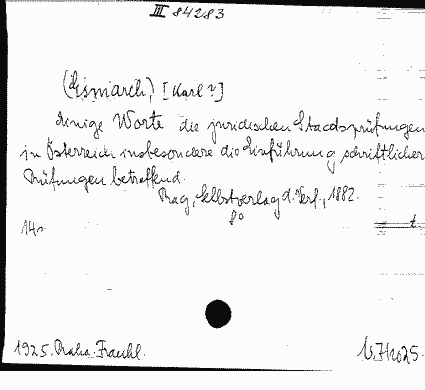 III 84283
(Eismarch,) [Karl?]
Einige Worte die juridischen Staatsprüfungen
in Österreich insbesondere die Einführung schriftlicher
Prüfungen betreffend.
Prag, Selbstverlag d. Verf., 1882.
8°
14
t
1925. Praha. Frankl.